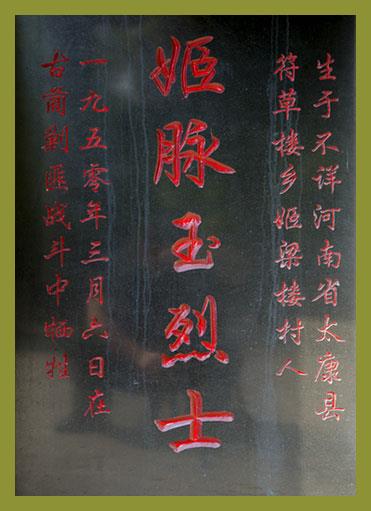 生于不详河南省太康县
符草楼乡姬梁楼村人
姬脉玉烈士
一九五零年三月六日在
古蔺剿匪战斗中牺牲